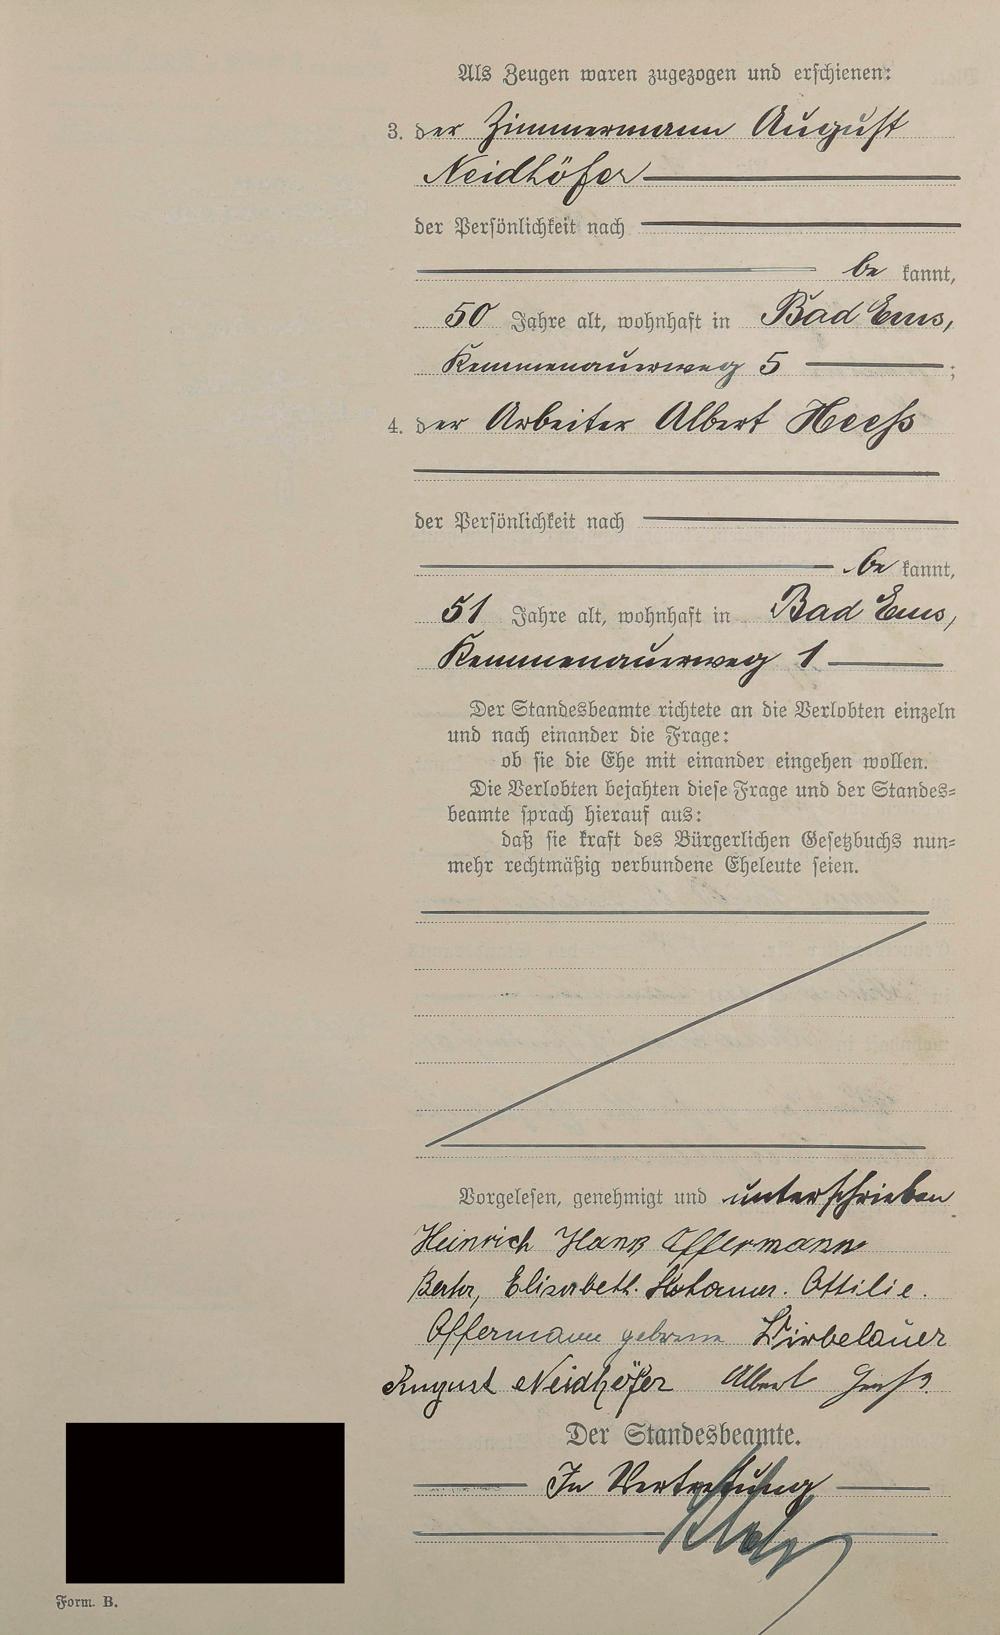 Als Zeugen waren zugezogen und erschienen:
3. der Zimmermann August
Neidhöfer
der Persönlichkeit nach
be kannt,
50 Jahre alt, wohnhaft in Bad Ems,
Kemmenauerweg 5 ;
4. der Arbeiter Albert Heeß
der Persönlichkeit nach
be kannt,
51 Jahre alt, wohnhaft in Bad Ems,
Kemmenauerweg 1
Der Standesbeamte richtete an die Verlobten einzeln
und nach einander die Frage:
ob sie die Ehe mit einander eingehen wollen.
Die Verlobten bejahten diese Frage und der Standes=
beamte sprach hierauf aus:
daß sie kraft des Bürgerlichen Gesetzbuchs nun=
mehr rechtmäßig verbundene Eheleute seien.
Vorgelesen, genehmigt und unterschrieben
Heinrich Hans Offermann
Elisabeth. Ottilie.
Offermann geborene Wirbelauer
August Neidhöfer Albert Heeß.
Der Standesbeamte.
In Vertretung
Form. B.